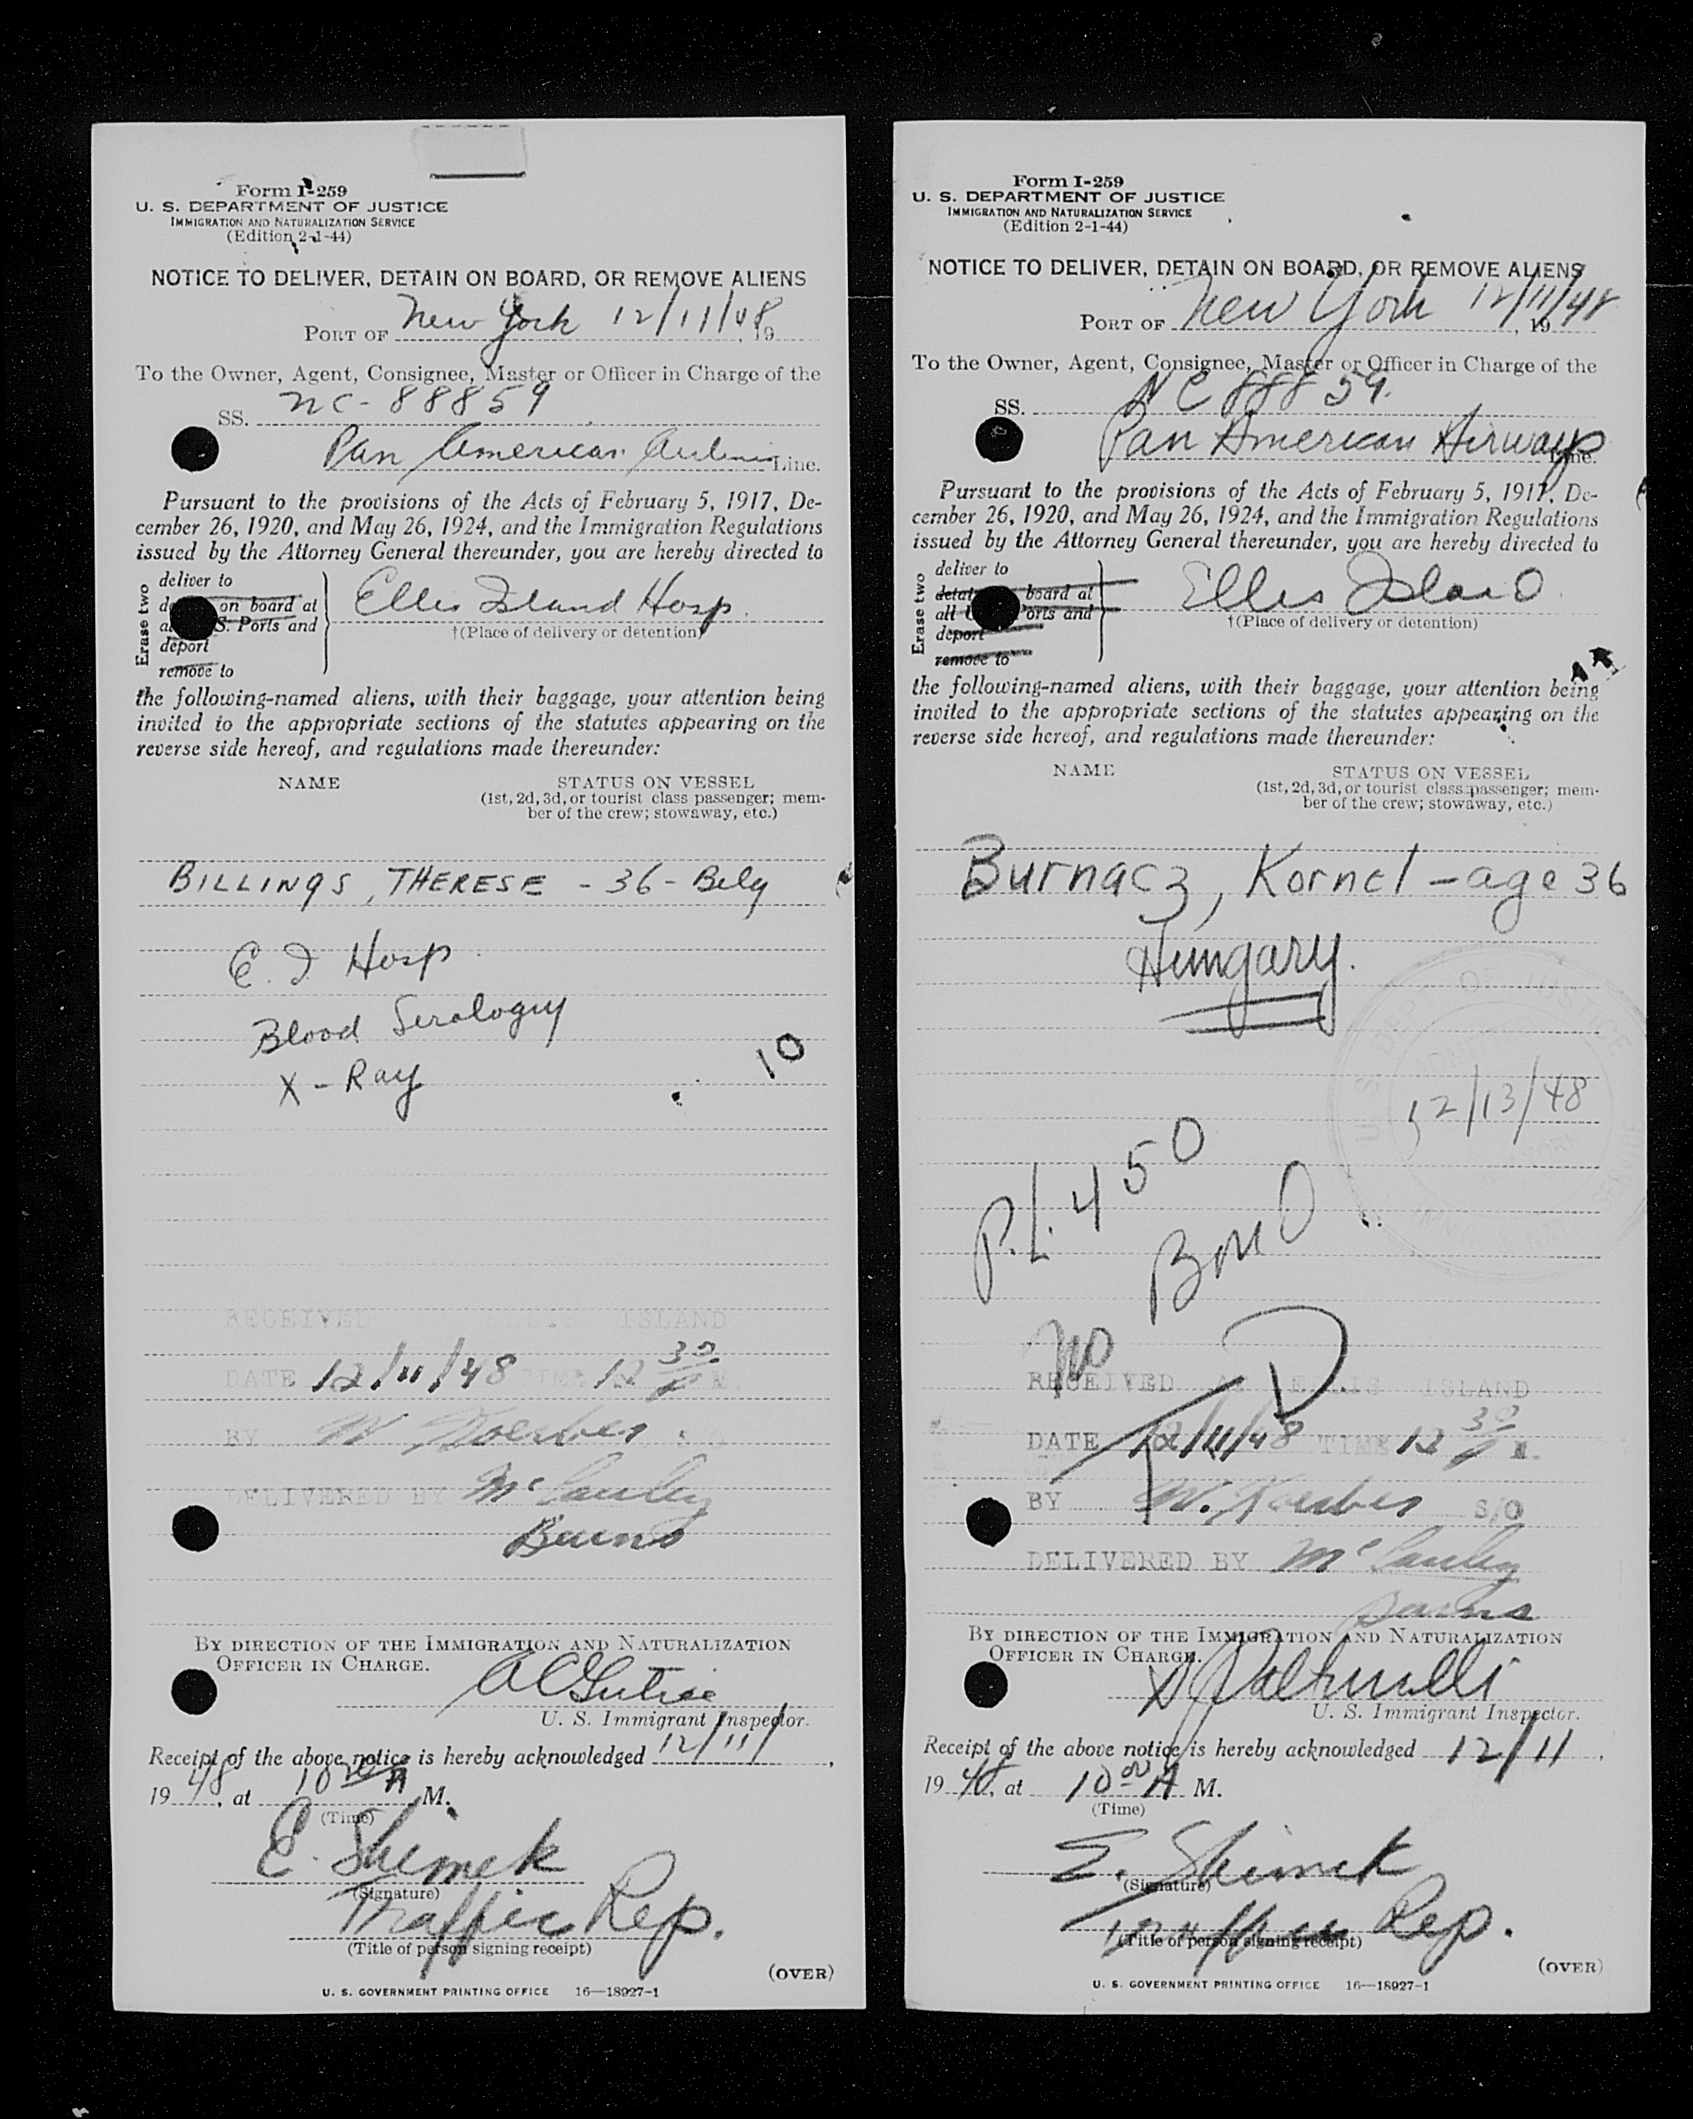 Form I-259
U. S. DEPARTMENT OF JUSTICE
IMMIGRATION AND NATURALIZATION SERVICE
(Edition 2-1-44)
NOTICE TO DELIVER, DETAIN ON BOARD, OR REMOVE ALIENS
PORT OF New York 12/11/48, 19
To the Owner, Agent, Consignee, Master or Officer in Charge of the
SS. NC-88859
Pan American Airlines Line.
Pursuant to the provisions of the Acts of February 5, 1917, De-
cember 26, 1920, and May 26, 1924, and the Immigration Regulations
issued by the Attorney General thereunder, you are hereby directed to
Erase two
deliver to
on board at
S. Ports and
deport
remove to
Ellis Island Hosp.
†(Place of delivery or detention)
the following-named aliens, with their baggage, your attention being
invited to the appropriate sections of the statutes appearing on the
reverse side hereof, and regulations made thereunder:
NAME STATUS ON VESSEL
(1st, 2d, 3d, or tourist class passenger; mem-
ber of the crew; stowaway, etc.)
BILLINGS, THERESE - 36 - Belg
E. I Hosp
Blood Serology
X-Ray
10
RECEIVED ELLIS ISLAND
DATE 12/11/48 TIME 12 30 P M.
BY W Koerber
DELIVERED BY McCauley
Burns
BY DIRECTION OF THE IMMIGRATION AND NATURALIZATION
OFFICER IN CHARGE.
U. S. Immigrant Inspector.
Receipt of the above notice is hereby acknowledged 12/11/,
1948, at 10 A M.
(Time)
E. Shimek
(Signature)
Traffic Rep.
(Title of person signing receipt)
(OVER)
U. S. GOVERNMENT PRINTING OFFICE 16—18927-1
Form I-259
U. S. DEPARTMENT OF JUSTICE
IMMIGRATION AND NATURALIZATION SERVICE
(Edition 2-1-44)
NOTICE TO DELIVER, DETAIN ON BOARD, OR REMOVE ALIENS
PORT OF New York 12/11/48, 19
To the Owner, Agent, Consignee, Master or Officer in Charge of the
SS. NC 88859.
Pan American Airways Line.
Pursuant to the provisions of the Acts of February 5, 1917, De-
cember 26, 1920, and May 26, 1924, and the Immigration Regulations
issued by the Attorney General thereunder, you are hereby directed to
Erase two
deliver to
board at
all Ports and
deport
remove to
Ellis Island
†(Place of delivery or detention)
the following-named aliens, with their baggage, your attention being
invited to the appropriate sections of the statutes appearing on the
reverse side hereof, and regulations made thereunder:
NAME STATUS ON VESSEL
(1st, 2d, 3d, or tourist class passenger; mem-
ber of the crew; stowaway, etc.)
Burnacz, Kornel - age 36
Hungary.
12/13/48
P.L. 450
BOND
RECEIVED AT ELLIS ISLAND
DATE 12/11/48 TIME 12 30 P M.
BY W. Koerber S/O
DELIVERED BY McCauley
Burns
BY DIRECTION OF THE IMMIGRATION AND NATURALIZATION
OFFICER IN CHARGE.
U. S. Immigrant Inspector.
Receipt of the above notice is hereby acknowledged 12/11,
1948, at 10 00 A M.
(Time)
E. Shimek
(Signature)
Traffic Rep.
(Title of person signing receipt)
(OVER)
U. S. GOVERNMENT PRINTING OFFICE 16—18927-1